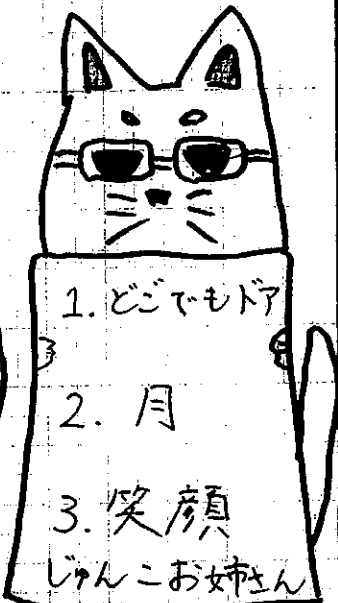 1. どこでもドア
2. 月
3. 笑顔
じゅんこお姉さん